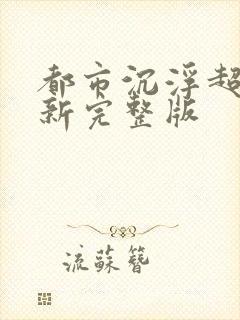 都市沉浮超
新完整版
流蘇簪